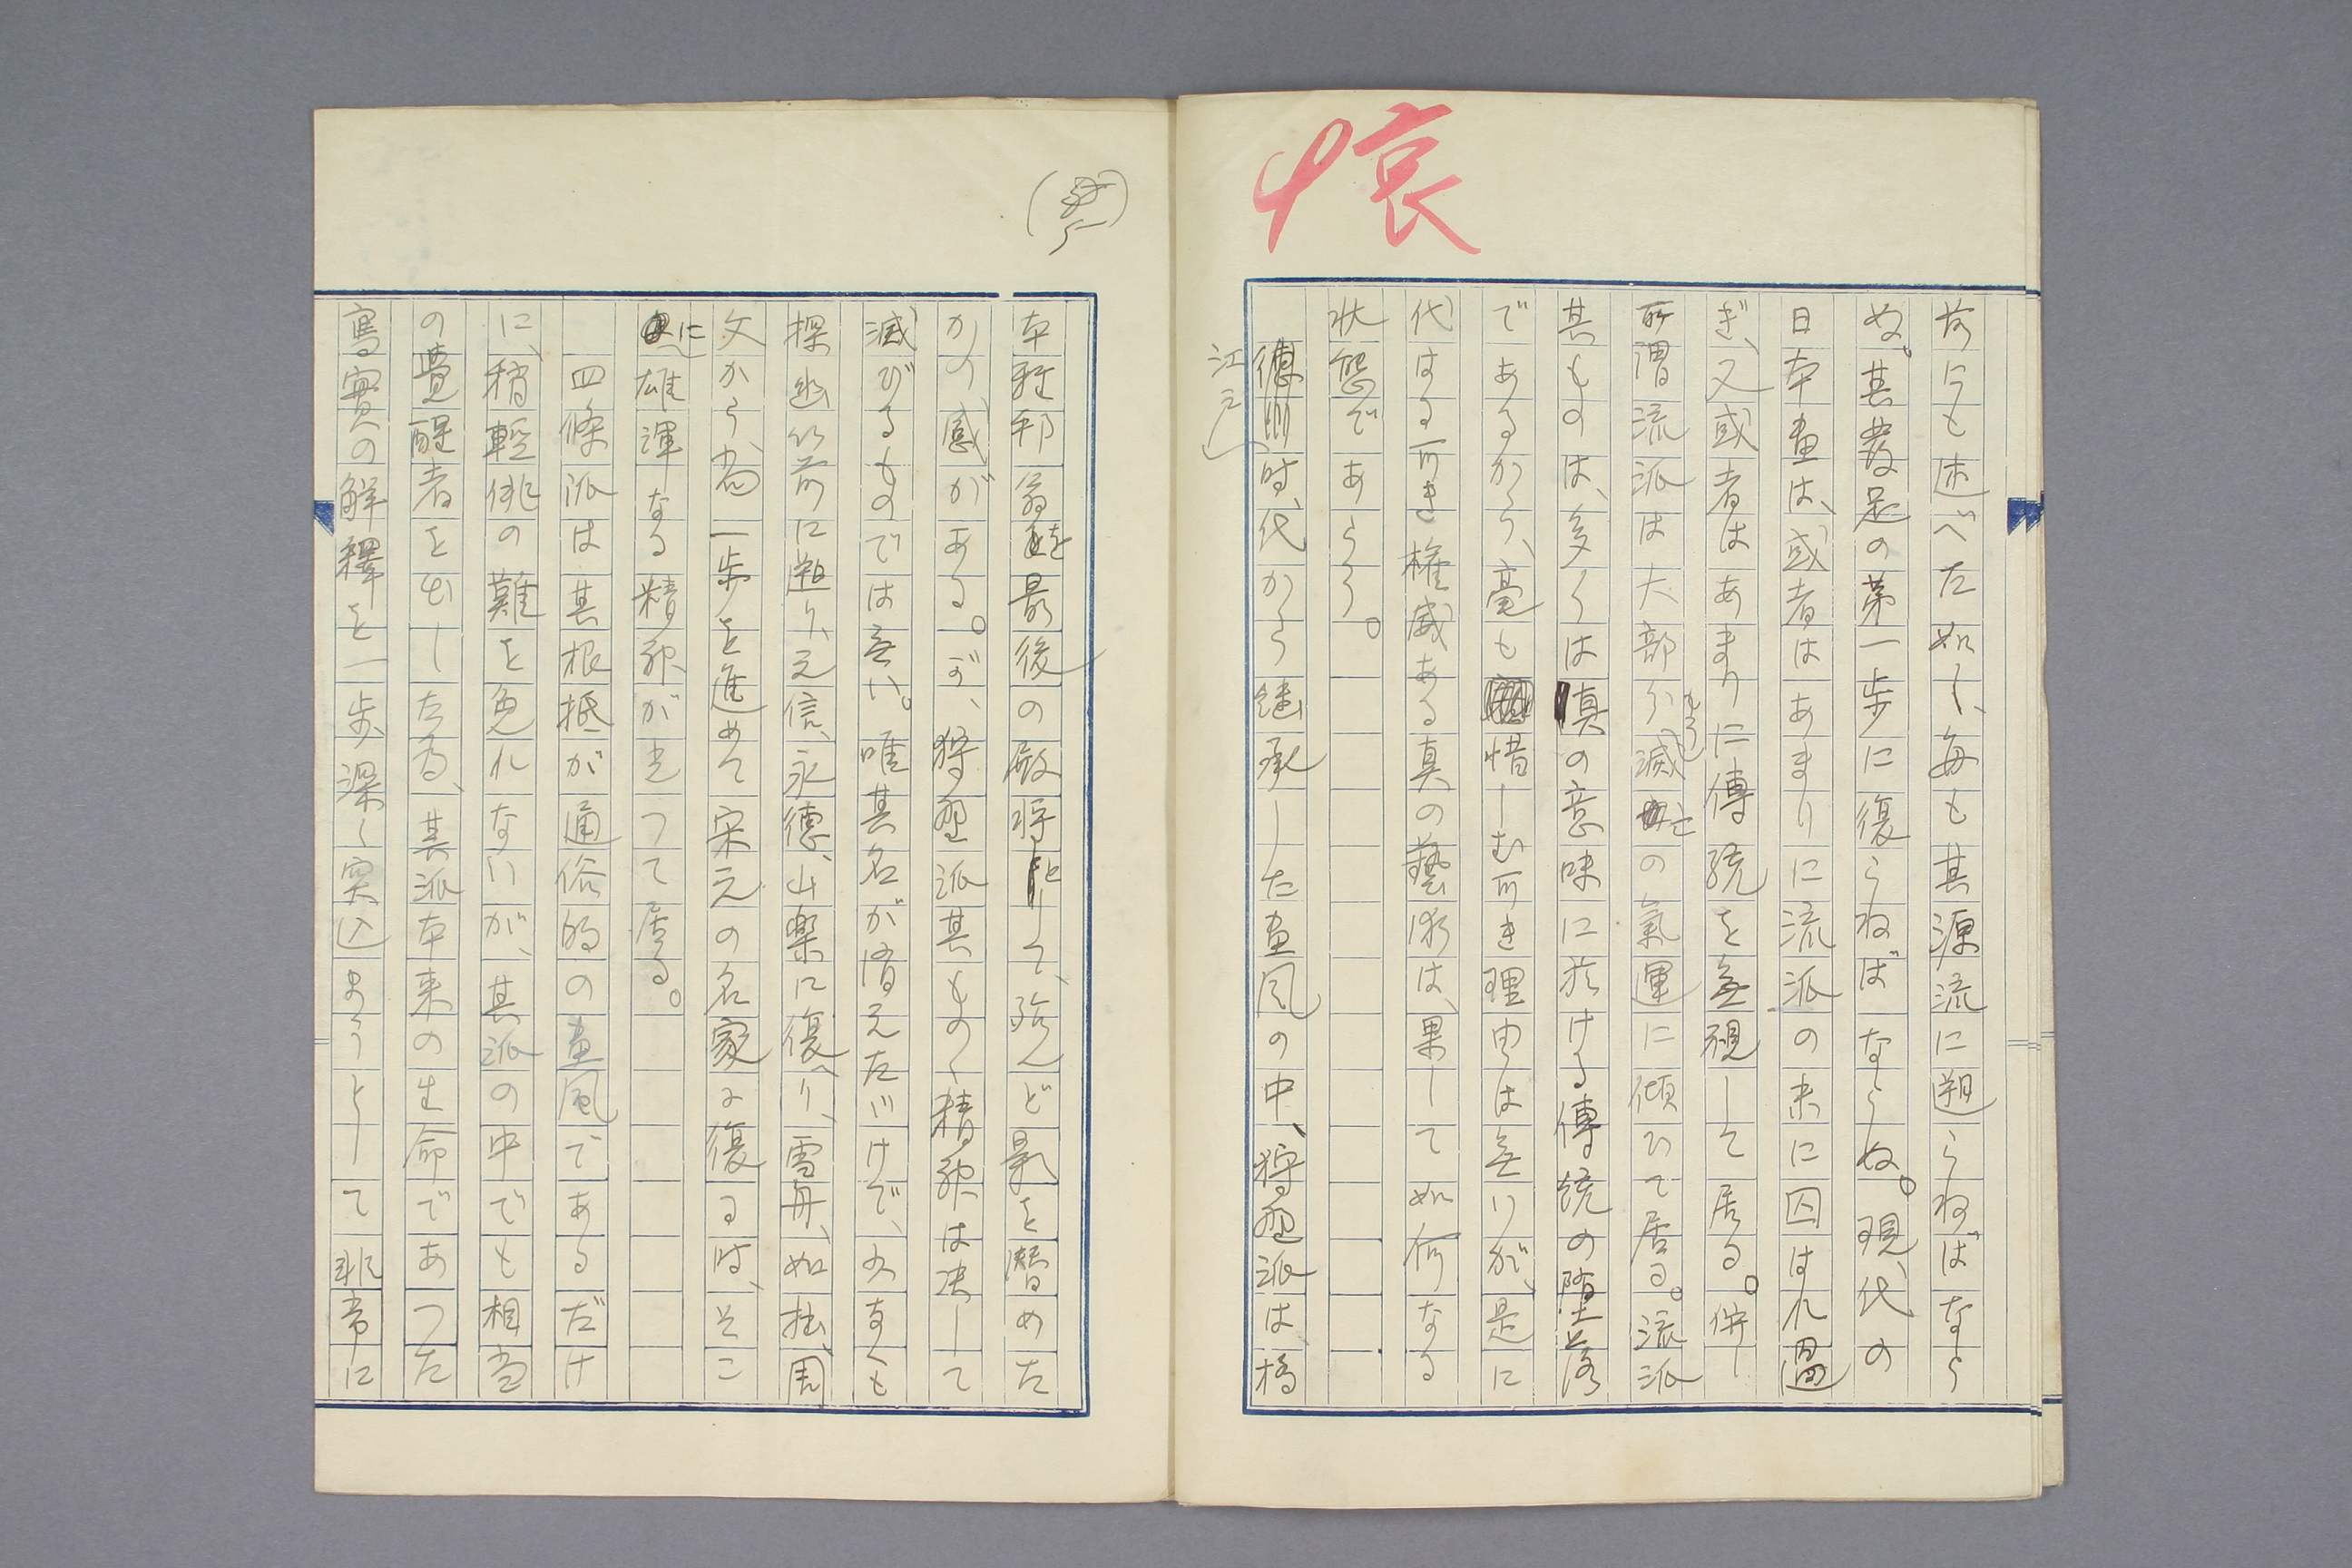 哀
前にも述べた如く、毎も其源流に遡らねばなら
ぬ。其發足の第一歩に復らねばならぬ。現代の
日本畫は、或者はあまりに流派の末に囚はれ過
ぎ、又或者はあまりに傳統を無視して居る。併し
所謂流派は大部分滅亡の氣運に傾ひて居る。流派
其ものは、多くは真の意味に於ける傳統の墮落
であるから、毫も惜しむ可き理由は無いが、是に
代はる可き権威ある真の藝術は、果して如何なる
状態であらう。
江戸
徳川時代から継承した畫風の中、狩野派は橋
本雅邦翁を最後の殿将として、殆んど影を潜めた
かの感がある。が、狩野派其ものゝ精神は決して
滅びるものでは無い。唯其名が消えただけで、少なくも
探幽以前に遡り、元信、永徳、山楽に復り、雪舟、如拙、周
文から、尚一歩を進めて宋元の名家に復る時、そこ
に雄渾なる精神が光つて居る。
四條派は其根抵が通俗的の畫風であるだけ
に、稍輕佻の難を免れないが、其派の中でも相当
の覺醒者を出したる、其派本来の生命であつた
寫實の解釋を一歩深く突込まうとして非常に